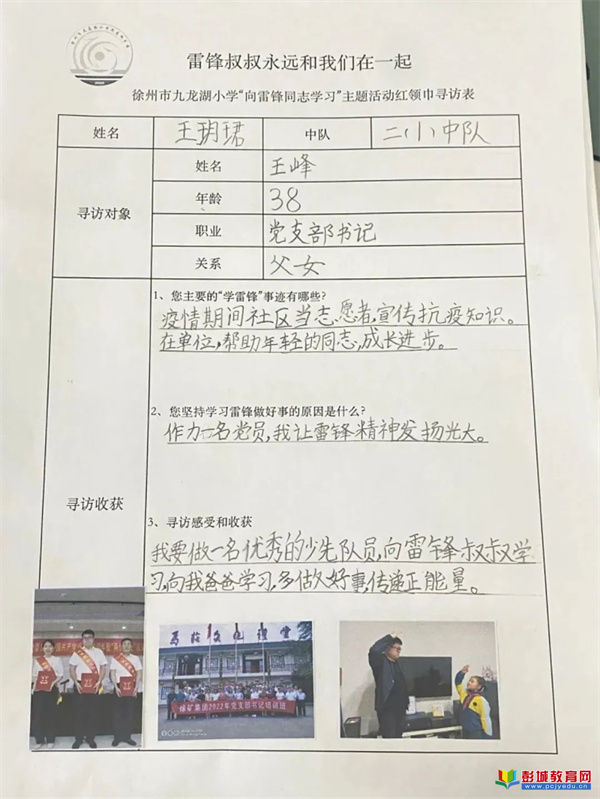 雷锋叔叔永远和我们在一起
徐州市九龙湖小学“向雷锋同志学习”主题活动红领巾寻访表
姓名 王玥珺 中队 二(1)中队
寻访对象
姓名 王峰
年龄 38
职业 党支部书记
关系 父女
寻访收获
1、您主要的“学雷锋”事迹有哪些?
疫情期间社区当志愿者,宣传抗疫知识。
在单位,帮助年轻的同志,成长进步。
2、您坚持学习雷锋做好事的原因是什么?
作力一名党员,我让雷锋精神发扬光大。
3、寻访感受和收获
我要做一名优秀的少先队员,向雷锋叔叔学
习,向我爸爸学习,多做好事,传递正能量。
徐矿集团2022年党支部书记培训班
彭城教育网
www.pcjyedu.cn